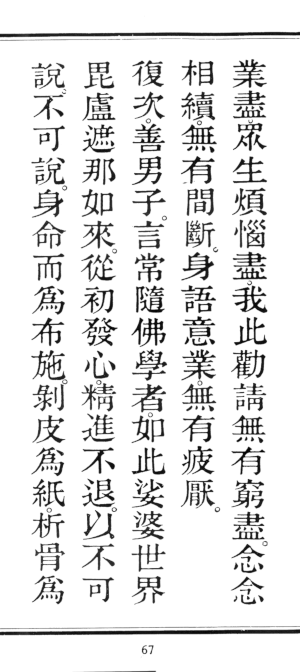 業盡眾生煩惱盡。我此勸請無有窮盡。念念
相續。無有間斷。身語意業。無有疲厭。
復次。善男子。言常隨佛學者。如此娑婆世界
毘盧遮那如來。從初發心。精進不退。以不可
說不可說。身命而為布施。剝皮為紙。析骨為
67